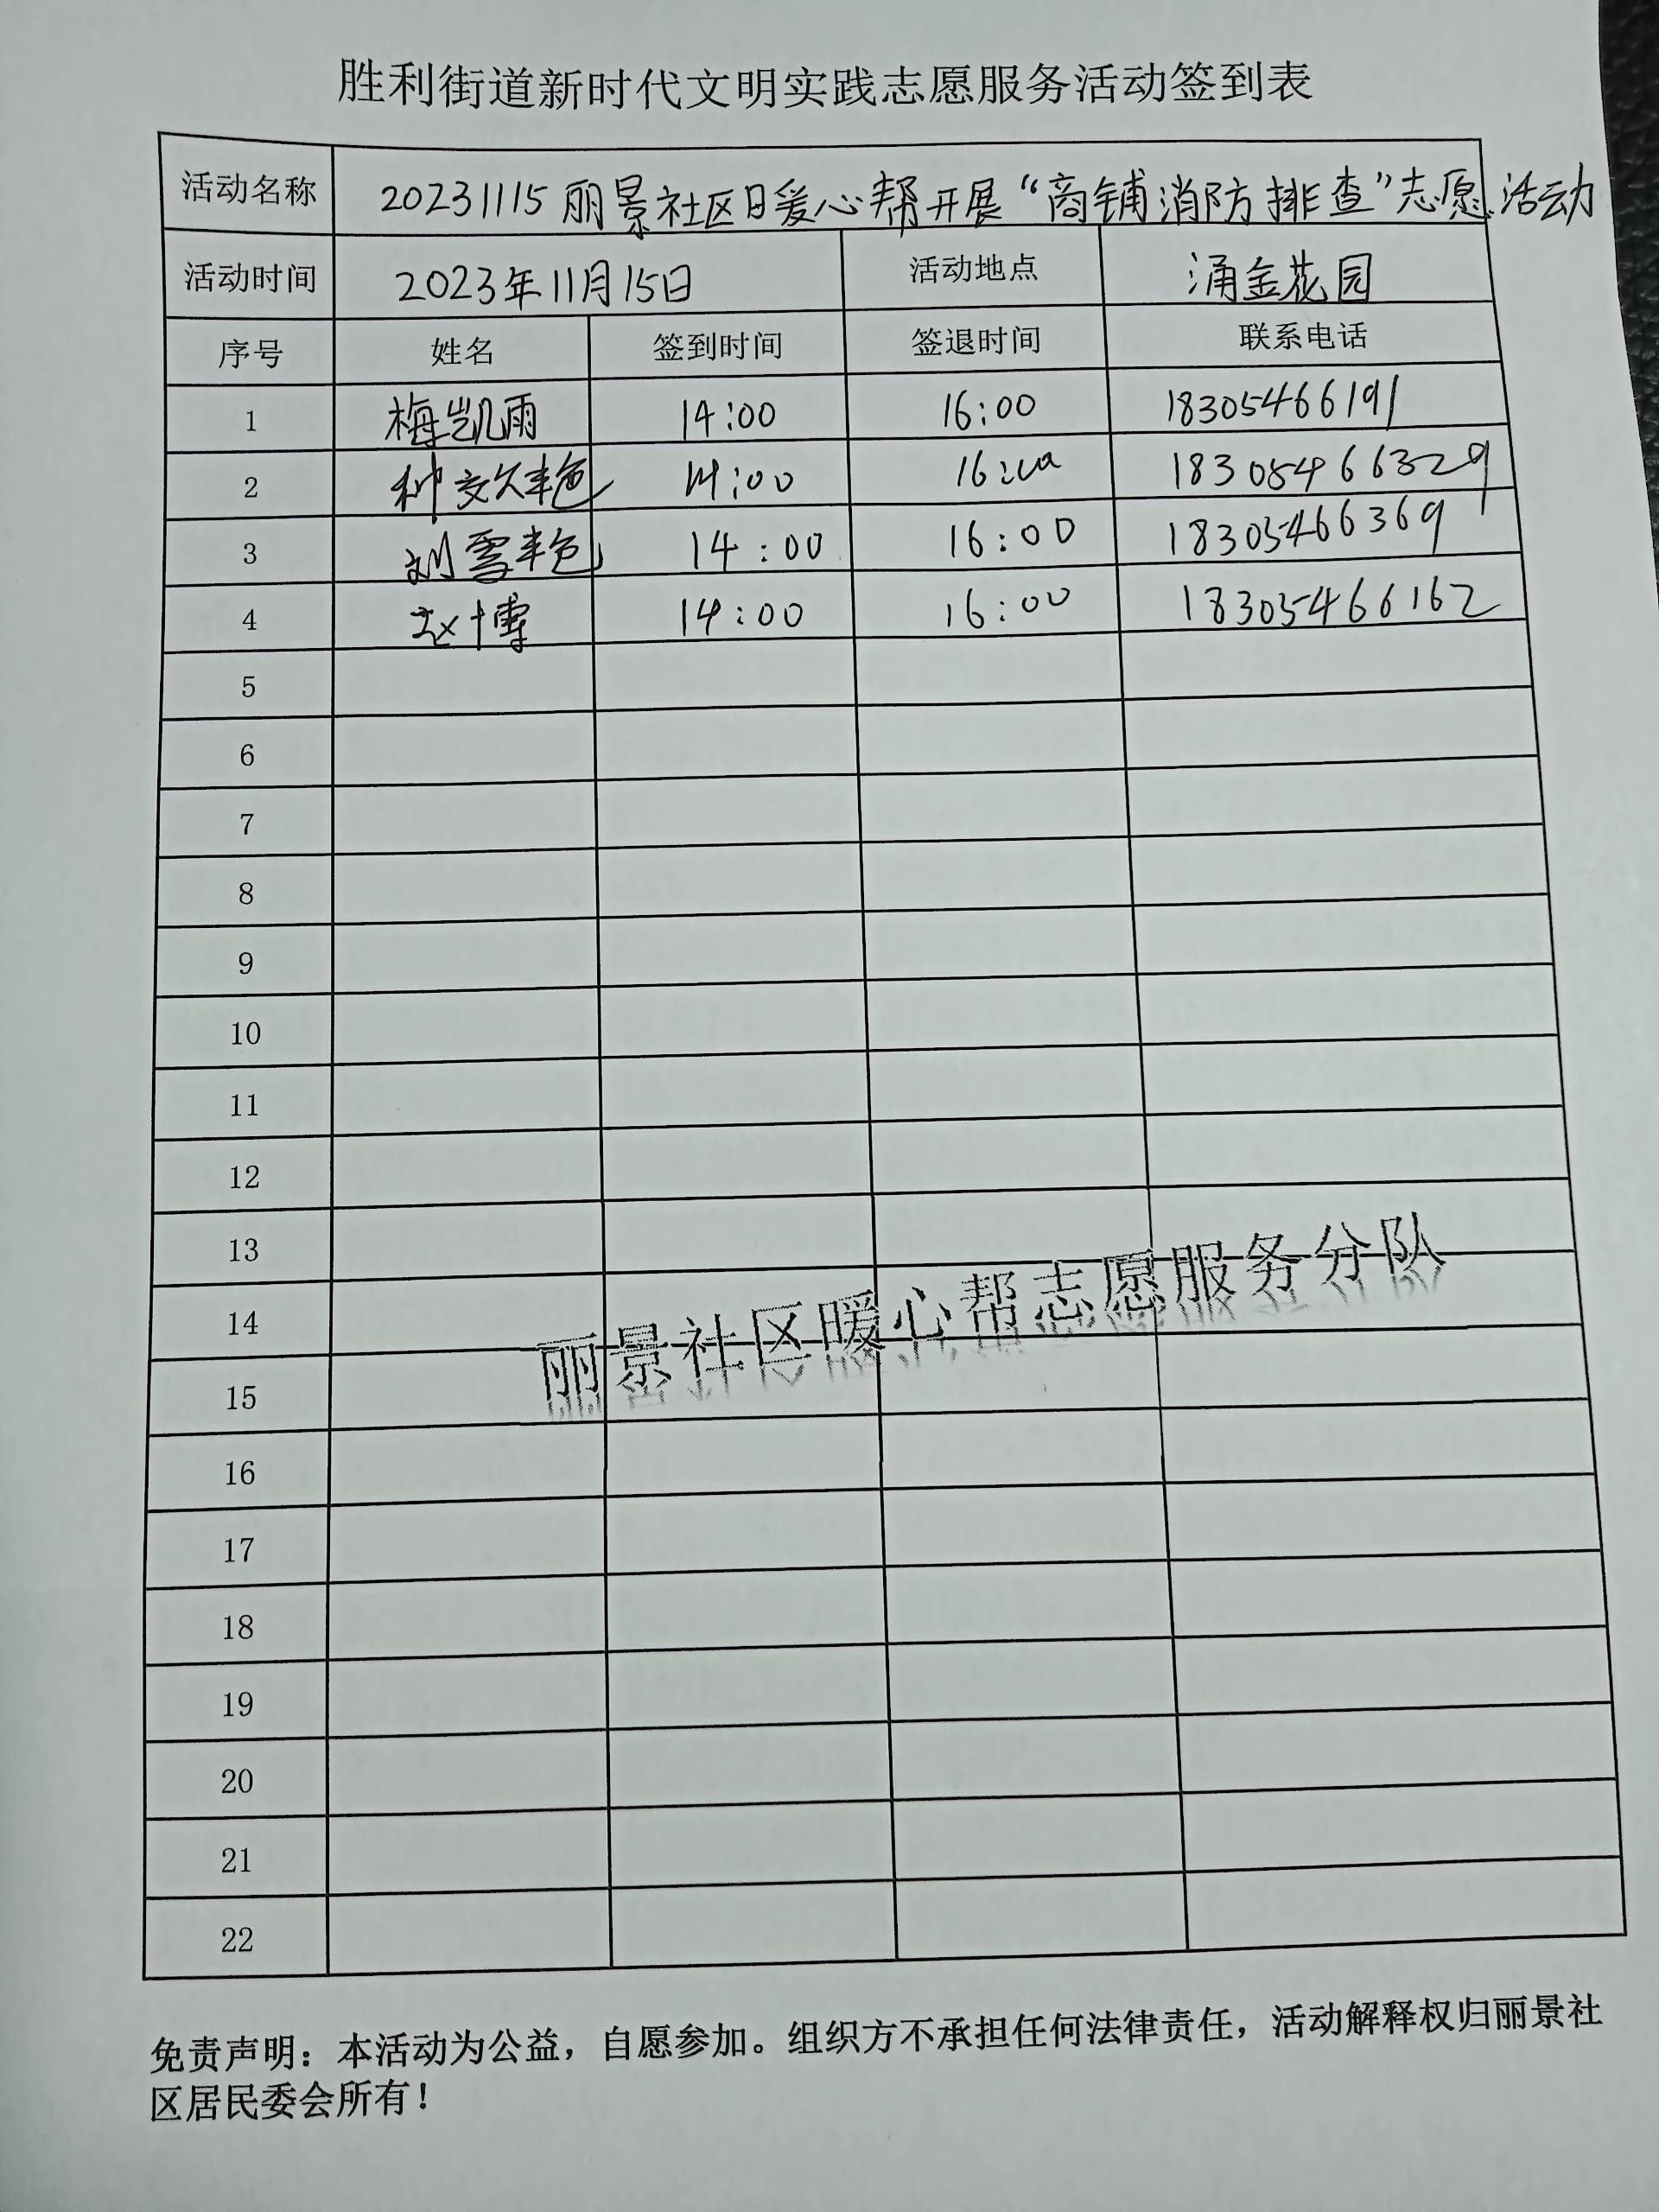 胜利街道新时代文明实践志愿服务活动签到表
活动名称 20231115丽景社区暖心帮开展“商铺消防排查”志愿活动
活动时间 2023年11月15日 活动地点 涌金花园
序号 姓名 签到时间 签退时间 联系电话
1 梅凯雨 14:00 16:00 18305466191
2 种文艳 14:00 16:00 18305466329
3 刘雪艳 14:00 16:00 18305466369
4 赵博 14:00 16:00 18305466162
5
6
7
8
9
10
11
12
13
14
15
16
17
18
19
20
21
22
丽景社区暖心帮志愿服务分队
免责声明：本活动为公益，自愿参加。组织方不承担任何法律责任，活动解释权归丽景社
区居民委会所有！